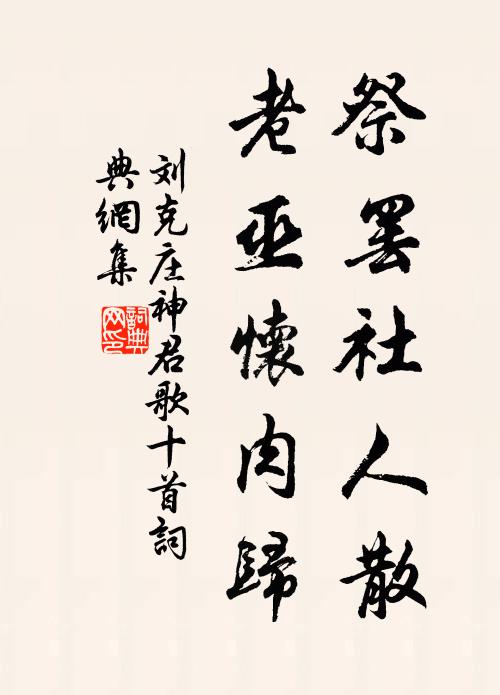 祭罢社人散
老巫懷肉歸
刘克庄神君歌十首詞
典網集
詞典
网印